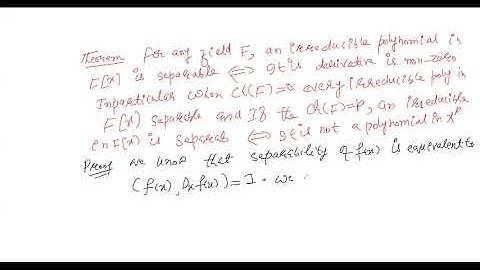 Theorem For any field F, an irreducible polynomial in
F[x] is separable ⟺ It is derivative is non-zero
Inparticular when Ch(F)=0 every irreducible poly in
F[x] separable and If the Ch(F)=P, an irreducible
in F[x] is separab ⟺ It is not a polynomial in x^p
Proof we know that separability of f(x) is equivalent to
(f(x), Dx f(x)) = 1. we